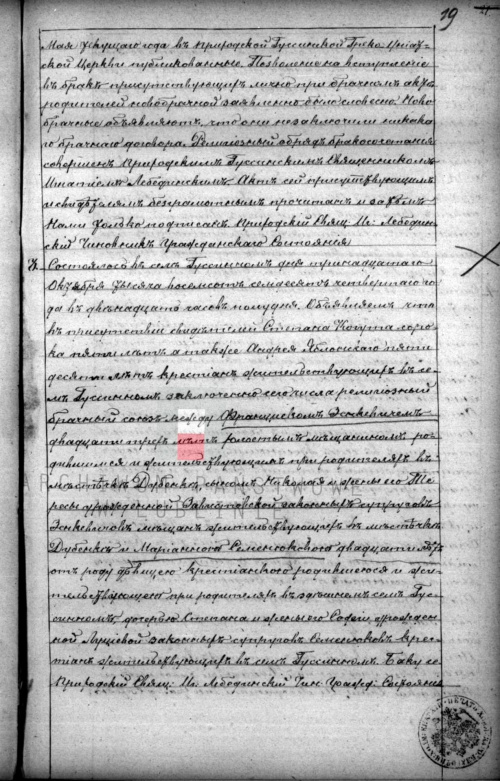 19
Мая текущаго года въ приходской Гуссинской Греко Уніат-
ской Церкви публикованные. Позволение на вступление
въ бракъ присутствующихъ лично при брачномъ акте
родителей новобрачной заявлено было словесно. Ново-
брачные объявляютъ, что они не заключили никака-
го брачнаго договора. Религіозный обрядъ бракосочетания
совершенъ Приходскимъ Гуссинскимъ Священникомъ
Игнатіемъ Лебединскимъ. Актъ сей присутствующимъ
и свидѣтелямъ безграмотнымъ прочитанъ и затѣмъ
Нами только подписанъ. Приходскій Свящ: Иг: Лебедин-
скій Чиновникъ Гражданскаго Состоянія
Состоялось въ селѣ Гуссинномъ дня тринадцатаго
Октября тысяча восемсотъ семдесятъ четвертаго го-
да въ двѣнадцать часовъ полудня. Объявляемъ что
въ присутствіи свидѣтелей Степана соро-
ка пяти лѣтъ а также Андрея пяти
десяти лѣтъ крестьянъ жительствующихъ въ се-
лѣ Гуссинномъ заключенъ сего числа религіозный
брачный союзъ между Францискомъ Эсикевичемъ
двадцати трехъ лѣтъ холостымъ мѣщаниномъ ро-
дившимся и жительствующимъ при родителяхъ въ
мѣстечкѣ Дубенкѣ, сыномъ Николая и жены его Те-
ресы урожденной законныхъ супруговъ
Эсикевичовъ мѣщанъ жительствующихъ въ мѣстечкѣ
Дубенкѣ и Маріанною Семенюковною двадцати лѣтъ
отъ роду дѣвицею крестьянкою родившеюся и жи-
тельствующею при родителяхъ въ здѣшнемъ селѣ Гус-
синномъ дочерью Степана и жены его Софіи урожден-
ной законныхъ супруговъ Семенюковъ крес-
тьянъ жительствующихъ въ селѣ Гуссинномъ. Браку се
Приходскій Свящ: Иг: Лебединскій Чин: Гражд: Состояния